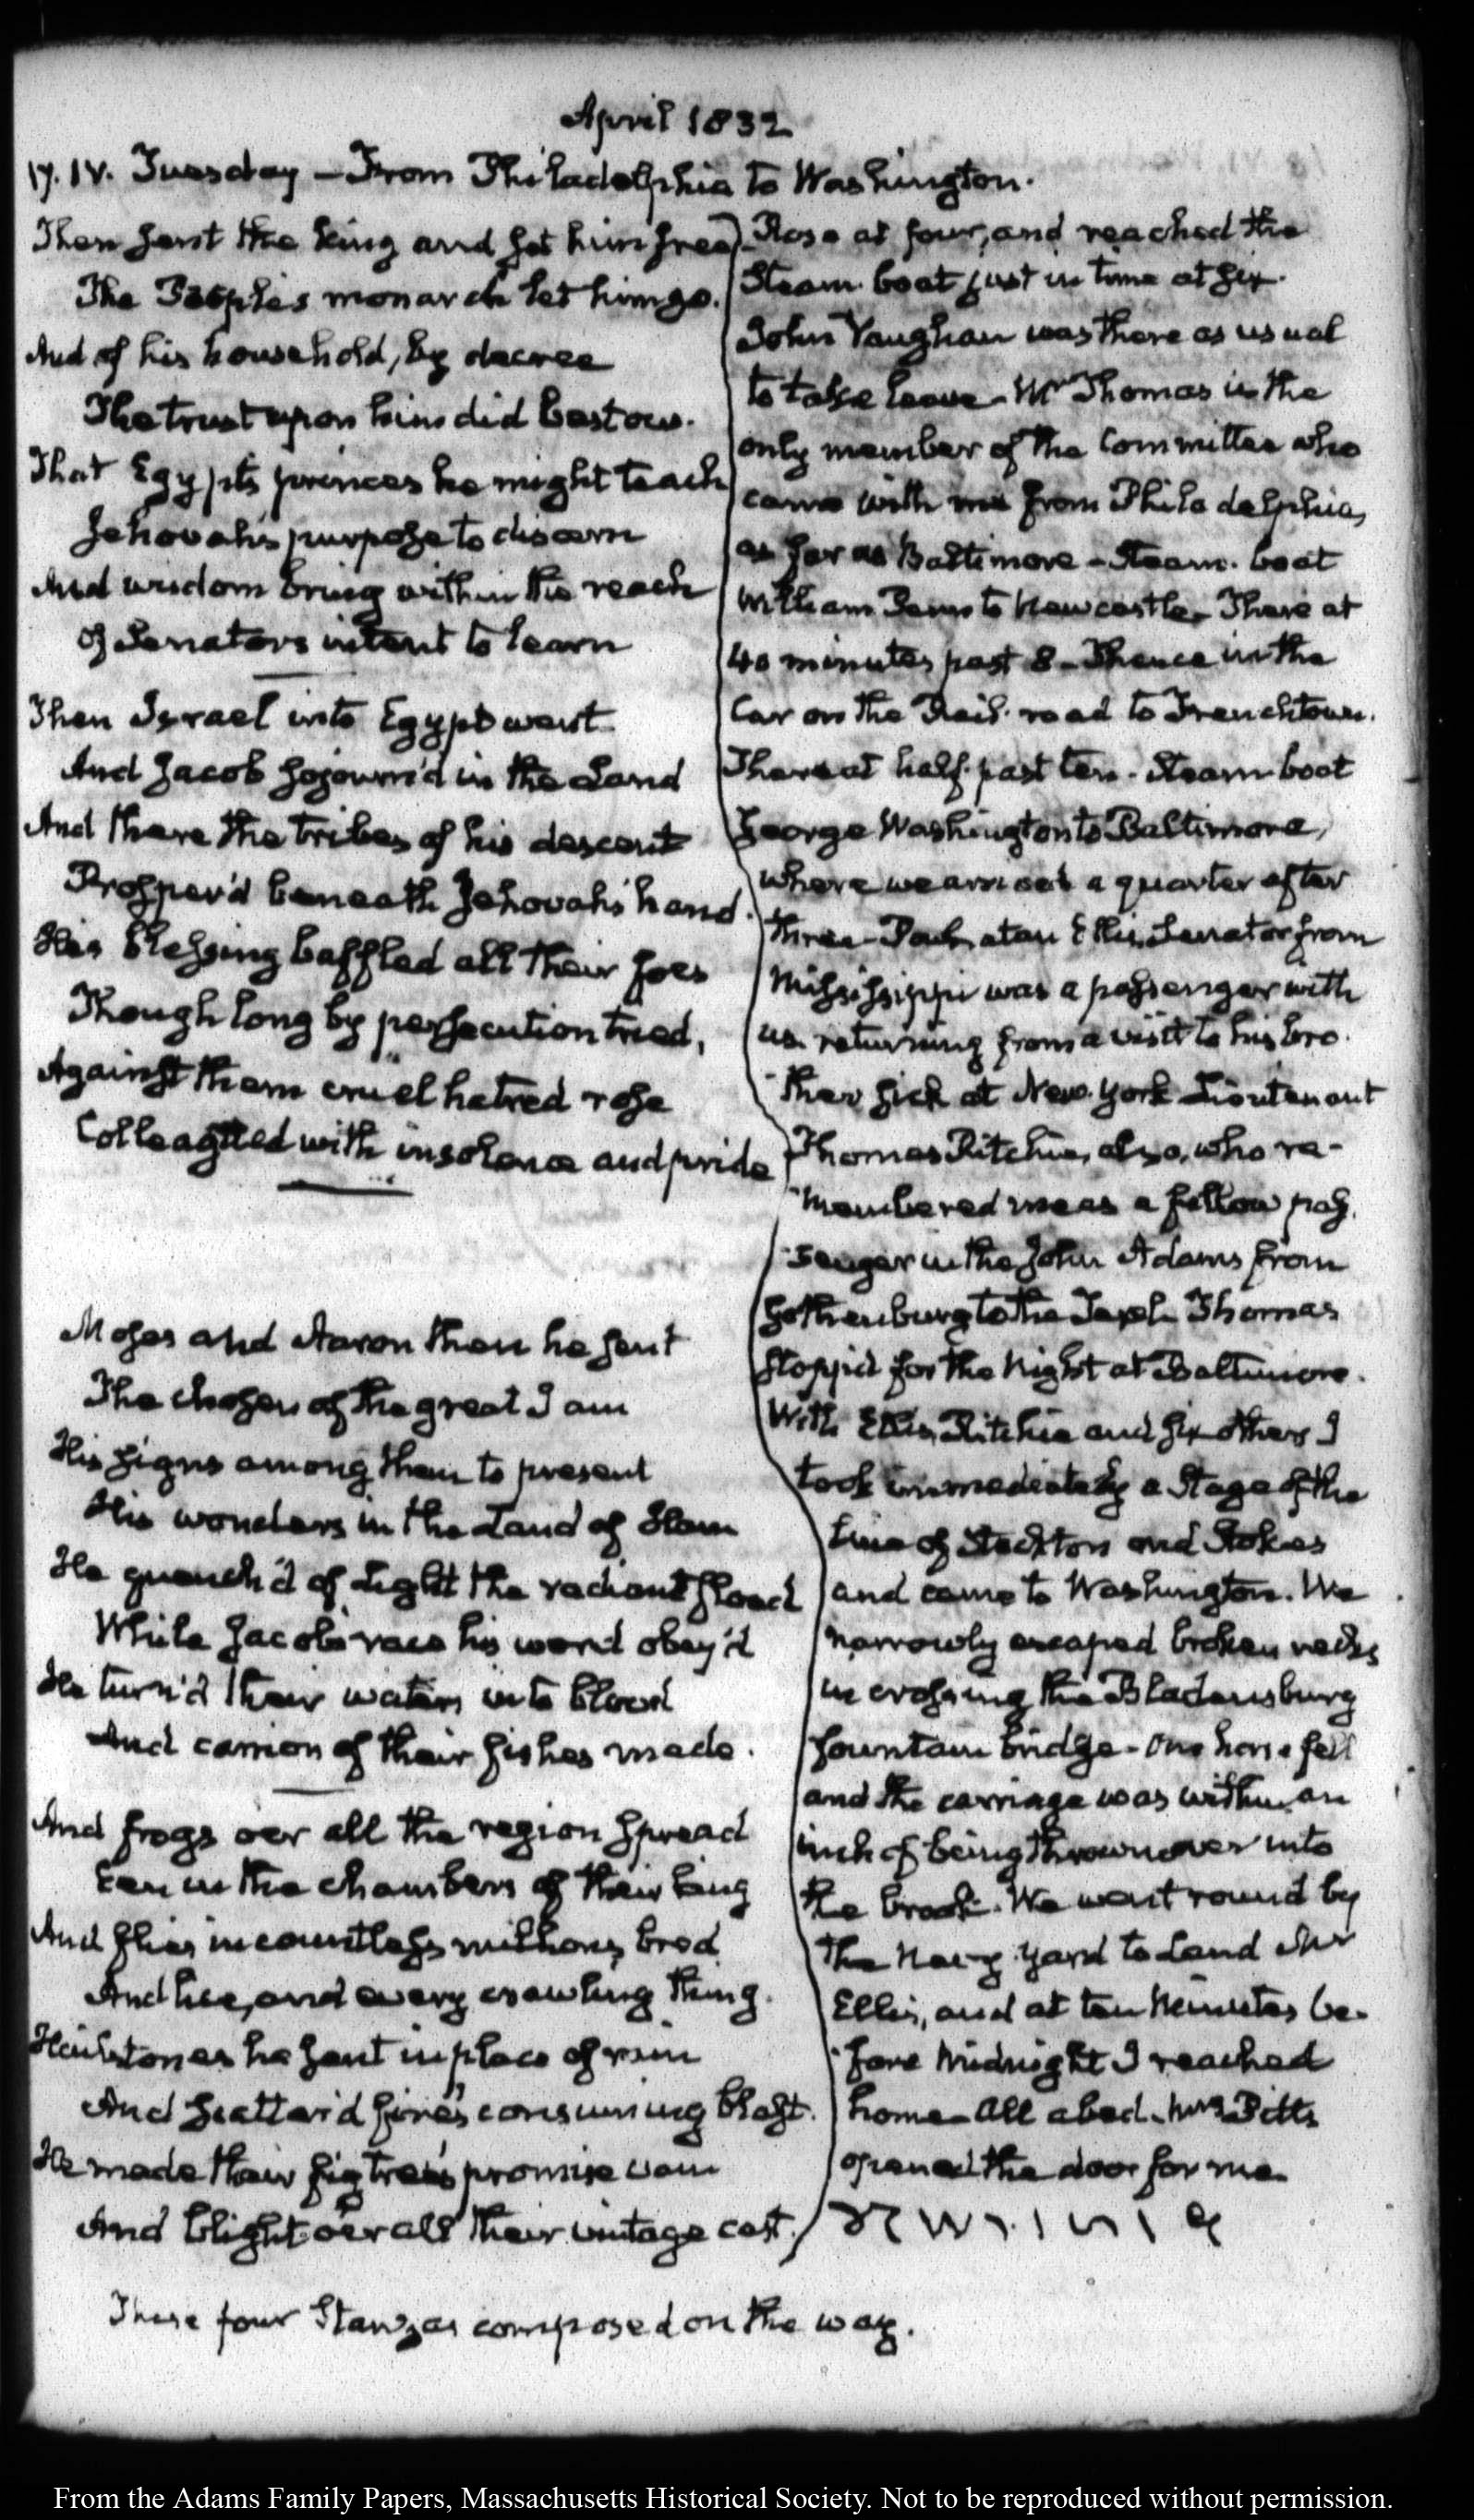 April 1832
17. IV. Tuesday – From Philadelphia to Washington.
Then sent the king and set him free
The People's monarch let him go.
And of his household, by decree
The trust upon him did bestow.
That Egypts princes he might teach
Jehovah's purpose to discern
And wisdom bring within the reach
Of Senators intent to learn
Then Israel into Egypt went
And Jacob sojourn'd in the Land
And there the tribes of his descent
Prosper'd beneath Jehovah's hand.
His blessing baffled all their foes
Though long by persecution tried,
Against them cruel hatred rose
Colleagued with insolence and pride
Moses and Aaron then he sent
The chosen of the great I am
His signs among them to present
His wonders in the Land of Ham
He quench'd of Light the radiant flood
While Jacob's race his word obey'd
He turn'd their waters into blood
And carrion of their fishes made.
And frogs oer all the region spread
Een in the chambers of their king
And flies in countless millions bred
And lice, and every crawling thing.
Hailstones he sent in place of rain
And scatter'd fire's consuming blast.
He made their fig tree's promise vain
And blight oer all their vintage cast.
Rose at four, and reached the
Steam-boat just in time at six.
John Vaughan was there as usual
to take leave. Mr Thomas is the
only member of the Committee who
came with me from Philadelphia,
as far as Baltimore – Steam-boat
William Penn to Newcastle. There at
40 minutes past 8 – Thence in the
Car on the Rail-road to Frenchtown.
There at half-past ten. Steam-boat
George Washington to Baltimore,
where we arrived a quarter after
three – Powhatan Ellis, Senator from
Mississippi was a passenger with
us returning from a visit to his bro-
ther sick at New-York Lieutenant
Thomas Ritchie, also, who re-
membered me as a fellow pas-
senger in the John Adams from
Gothenburg to the Texel. Thomas
stopp'd for the Night at Baltimore.
With Ellis, Ritchie and six others I
took immediately a Stage of the
Line of Stockton and Stokes
and came to Washington. We
narrowly escaped broken necks
in crossing the Bladensburg
fountain bridge – One horse fell
and the carriage was within an
inch of being thrown over into
the brook. We went round by
the Navy-Yard to Land Mr
Ellis, and at ten Minutes be-
fore Midnight I reached
home – All abed. Mrs Pitts
opened the door for me
These four Stanzas composed on the way.
From the Adams Family Papers, Massachusetts Historical Society. Not to be reproduced without permission.